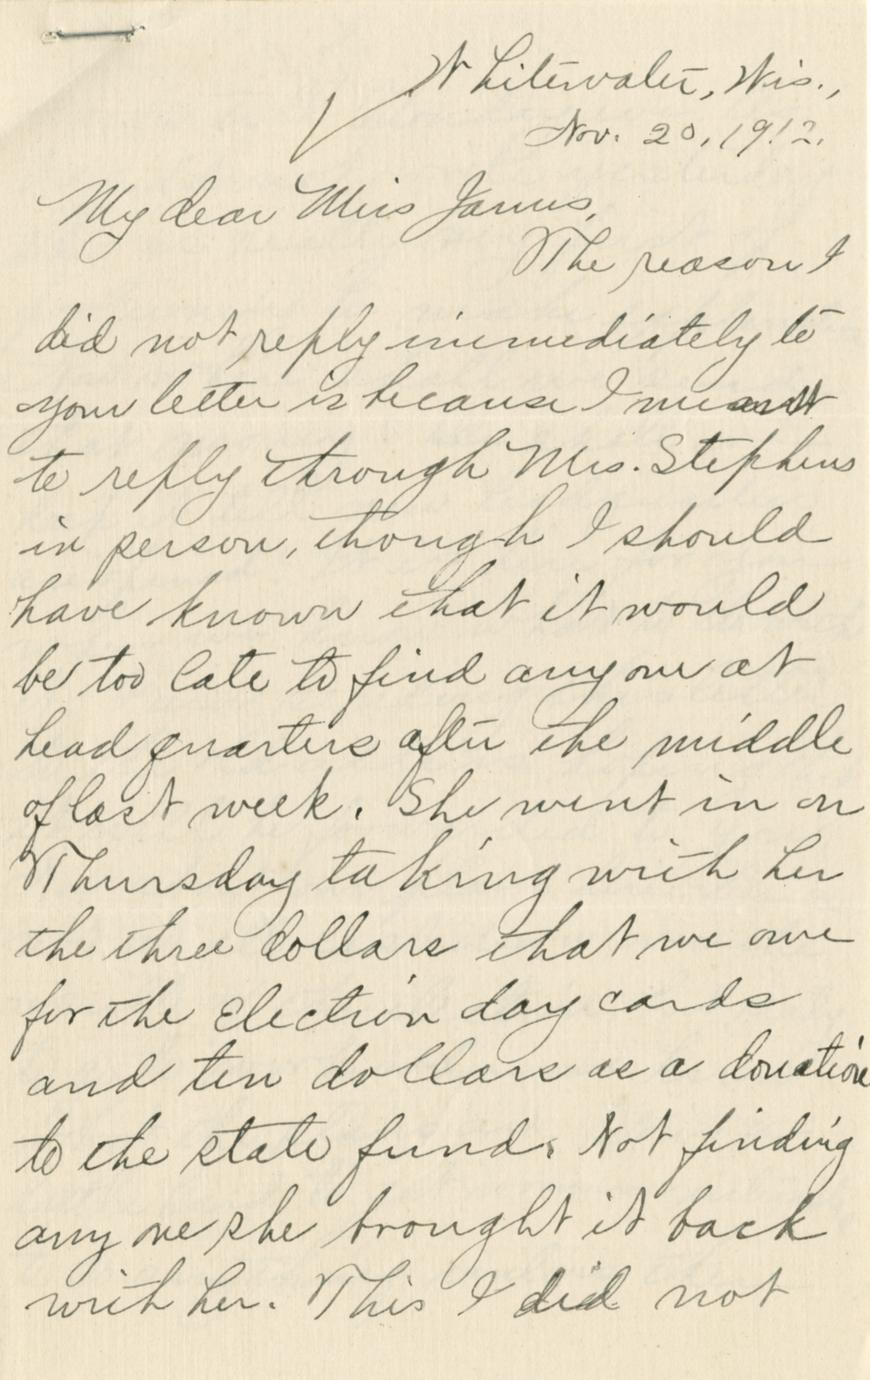 Whitewater, Wis.,
Nov. 20, 1912.
My dear Miss James,
The reason I
did not reply immediately to
your letter is because I meant
to reply through Mrs. Stephens
in person, though I should
have known that it would
be too late to find any one at
head quarters after the middle
of last week. She went in on
Thursday taking with her
the three dollars that we owe
for the Election day cards
and ten dollars as a donation
to the state fund. Not finding
any one she brought it back
with her. This I did not